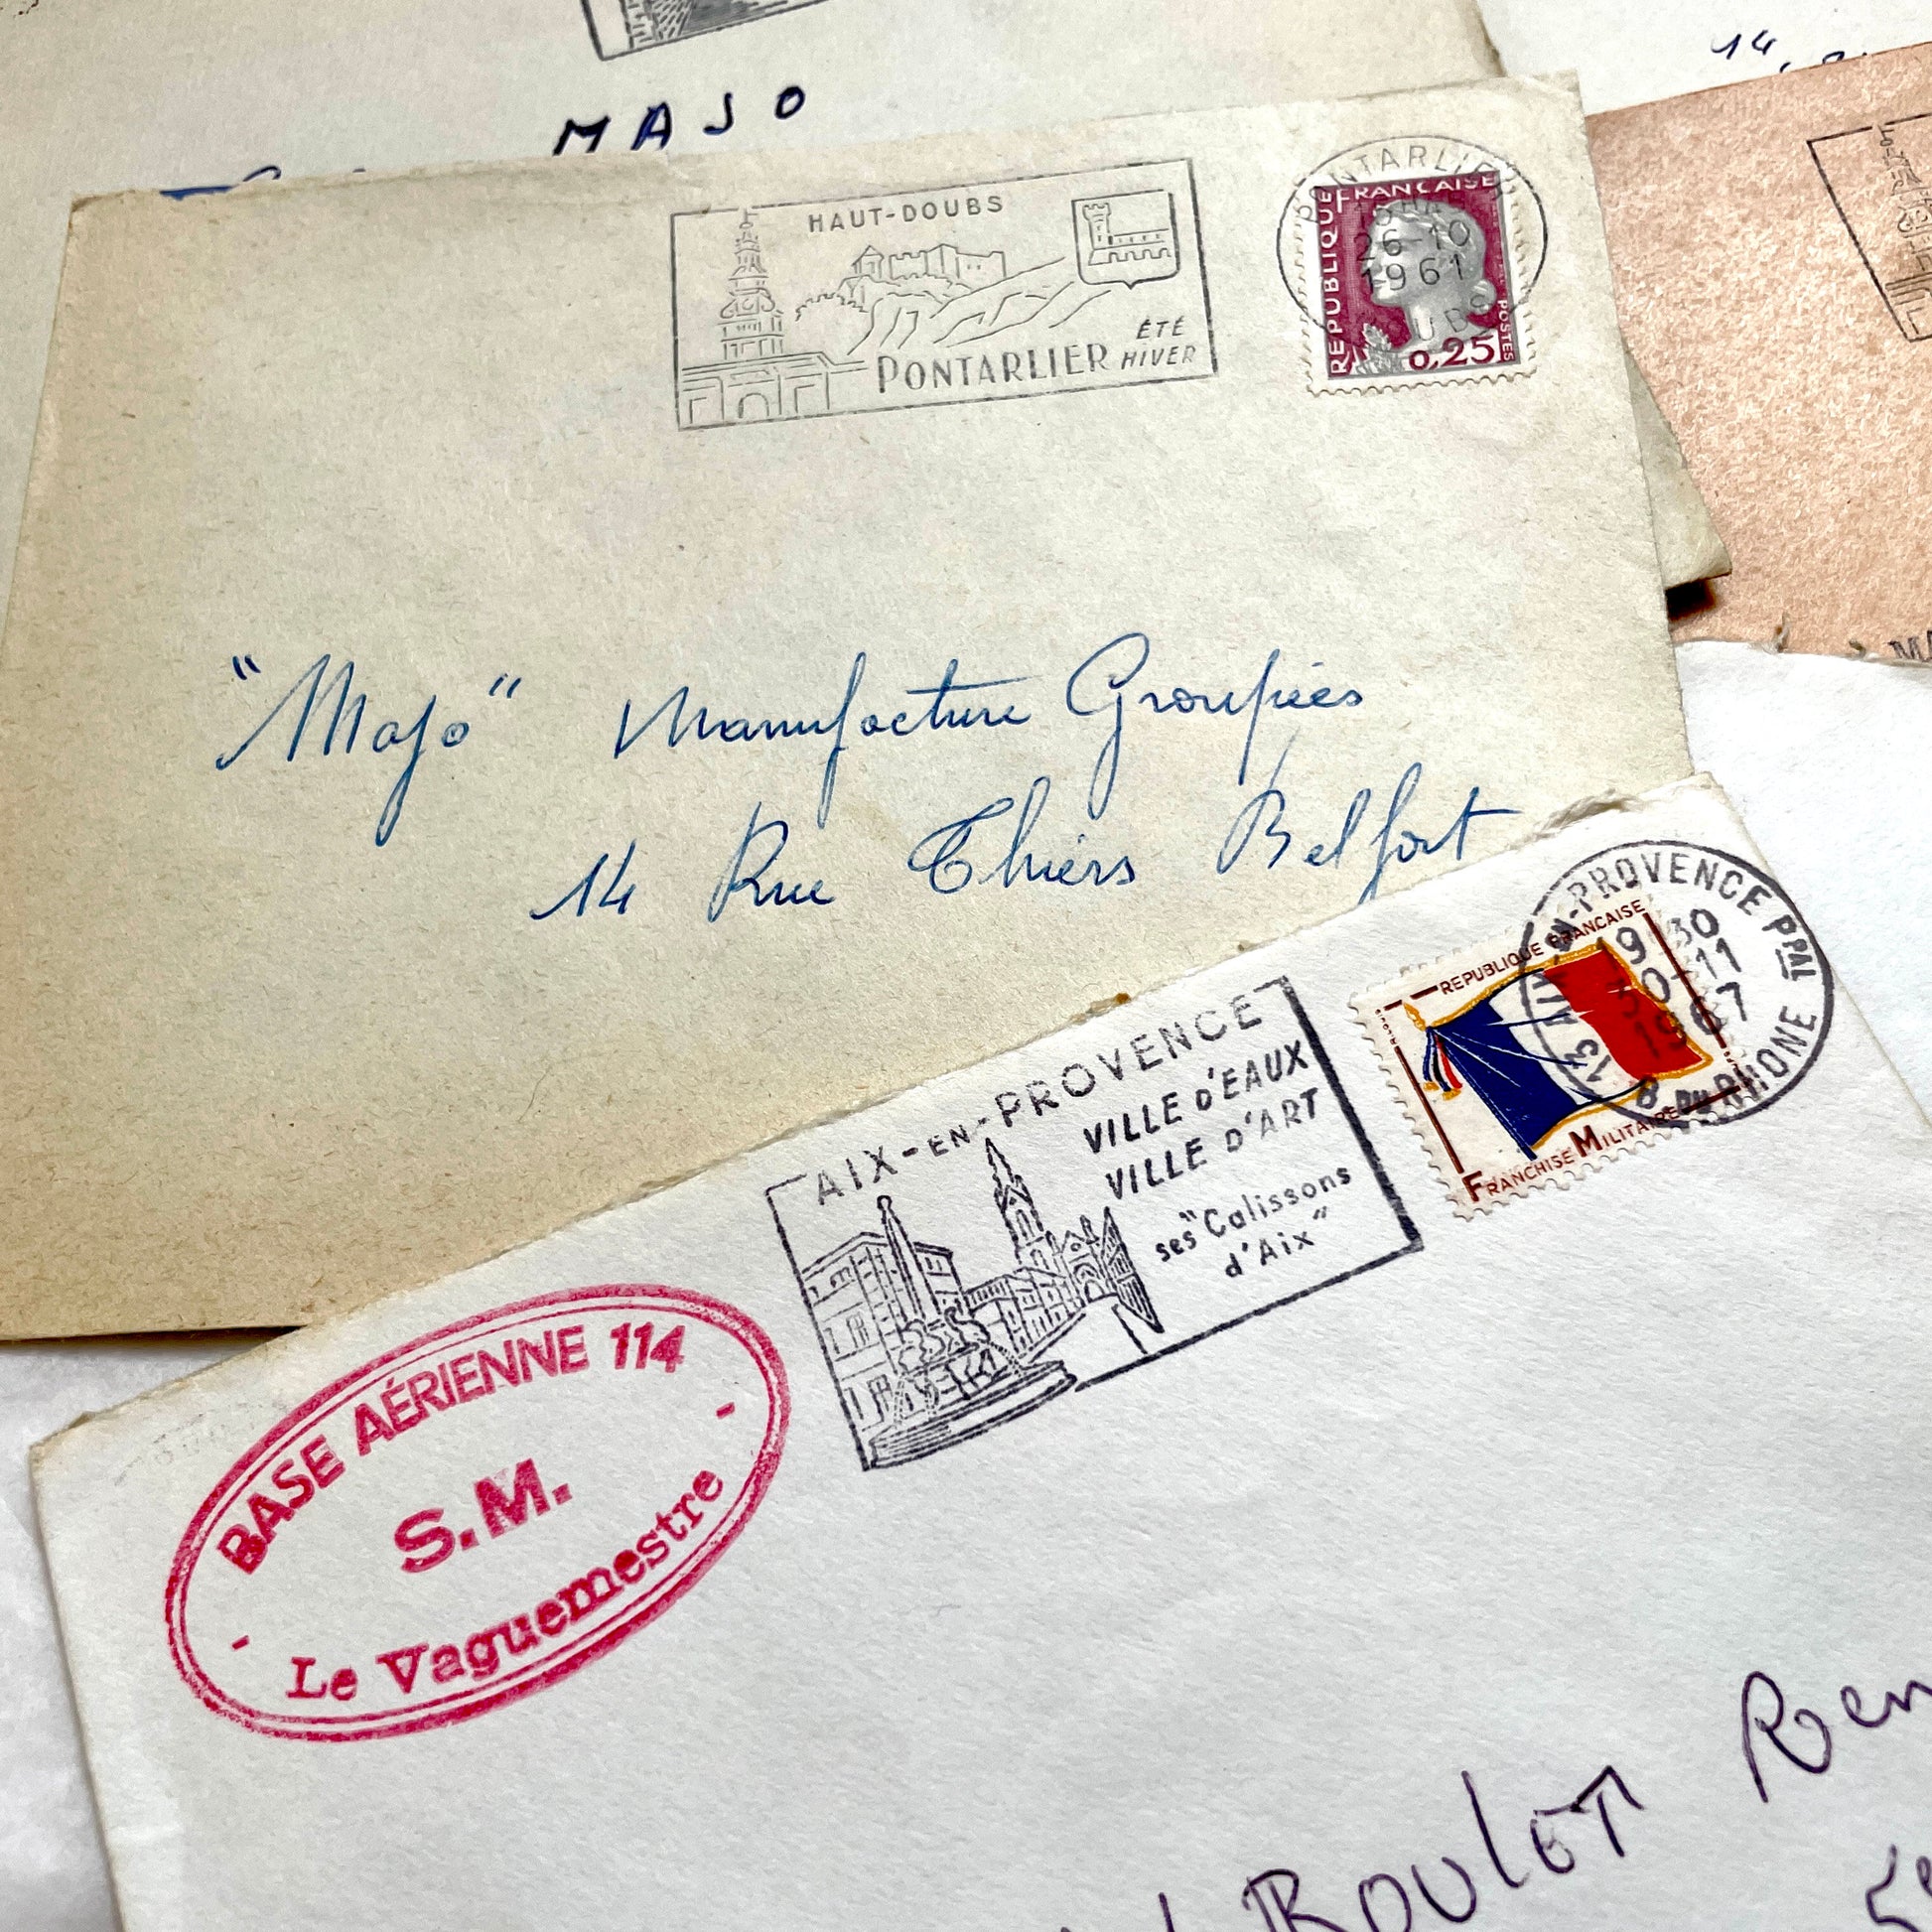 MAJO
14
HAUT-DOUBS
PONTARLIER
ÉTÉ
HIVER
PONTARLIER
26-10
1961
REPUBLIQUE FRANÇAISE
POSTES
0,25
"Majo" Manufacture Groupiées
14 Rue Thiers Belfort
AIX-EN-PROVENCE
VILLE D'EAUX
VILLE D'ART
ses "Calissons
d'Aix"
REPUBLIQUE FRANÇAISE
FRANCHISE MILITAIRE
13 AIX-EN-PROVENCE PPAL
9 30
30-11
1967
B. DU RHONE
BASE AÉRIENNE 114
S.M.
Le Vaguemestre
ROULOT